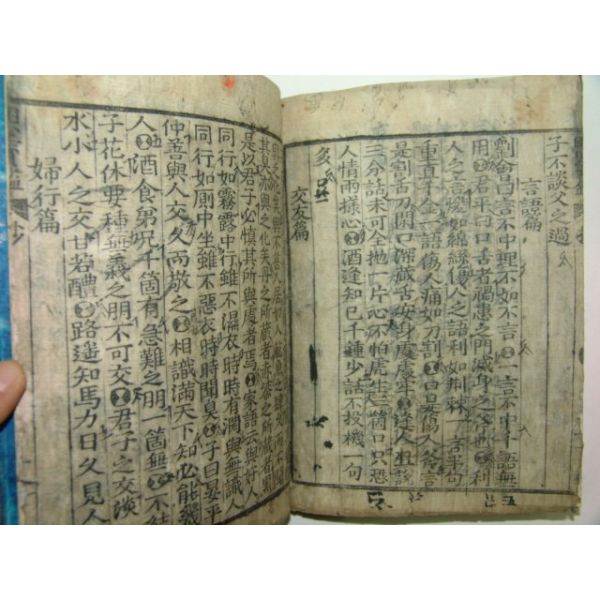 子不談父之過
言語篇
劉會曰言不中理不如不言 一言不中千語無
用 君平曰口舌者禍患之門滅身之斧也 利
人之言煖如綿絲傷人之語利如荊棘一言半句
重直千金一語傷人痛如刀割 口是傷人斧言
是割舌刀閉口深藏舌安身處處牢 逢人且說
三分話未可全抛一片心不怕虎生三箇口只恐
人情兩樣心 酒逢知己千鍾少話不投機一句
多
交友篇
不善人居如入鮑魚之
其臭亦與之化矣丹之所藏者赤漆之所藏者黑
是以君子必慎其所與處者焉 家語云與好人
同行如霧露中行雖不濕衣時時有潤與無識人
同行如厠中坐雖不惡衣時時聞臭 子曰晏平
仲善與人交久而敬之 相識滿天下知心能幾
人 酒食弟兄千箇有急難之朋一箇無 不結
子花休要種無義之朋不可交 君子之交淡
水小人之交甘若醴 路遥知馬力日久見人
婦行篇
寶鑑 抄